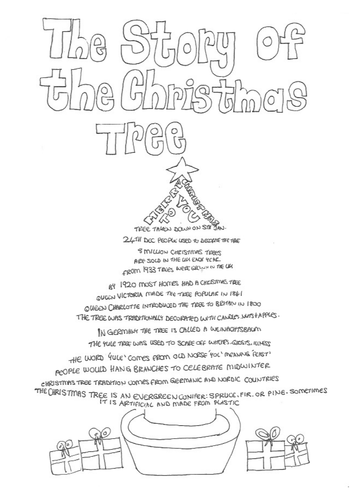 The Story of
the Christmas
Tree
MERRY
CHRISTMAS
TO YOU
TREE TAKEN DOWN ON 5TH JAN.
24TH DEC PEOPLE USED TO DECORATE THE TREE
8 MILLION CHRISTMAS TREES
ARE SOLD IN THE UK EACH YEAR.
FROM 1933 TREES WERE GROWN IN THE UK
BY 1920 MOST HOMES HAD A CHRISTMAS TREE
QUEEN VICTORIA MADE THE TREE POPULAR IN 1841
QUEEN CHARLOTTE INTRODUCED THE TREE TO BRITAIN IN 1800
THE TREE WAS TRADITIONALLY DECORATED WITH CANDLES AND APPLES.
IN GERMANY THE TREE IS CALLED A WEIHNACHTSBAUM
THE YULE TREE WAS USED TO SCARE OFF WITCHES, GHOSTS, ILLNESS
THE WORD 'YULE' COMES FROM OLD NORSE 'YUL' MEANING 'FEAST'
PEOPLE WOULD HANG BRANCHES TO CELEBRATE MIDWINTER
CHRISTMAS TREE TRADITION COMES FROM GERMANIC AND NORDIC COUNTRIES
THE CHRISTMAS TREE IS AN EVERGREEN CONIFER: SPRUCE, FIR, OR PINE. SOMETIMES
IT IS ARTIFICIAL AND MADE FROM PLASTIC